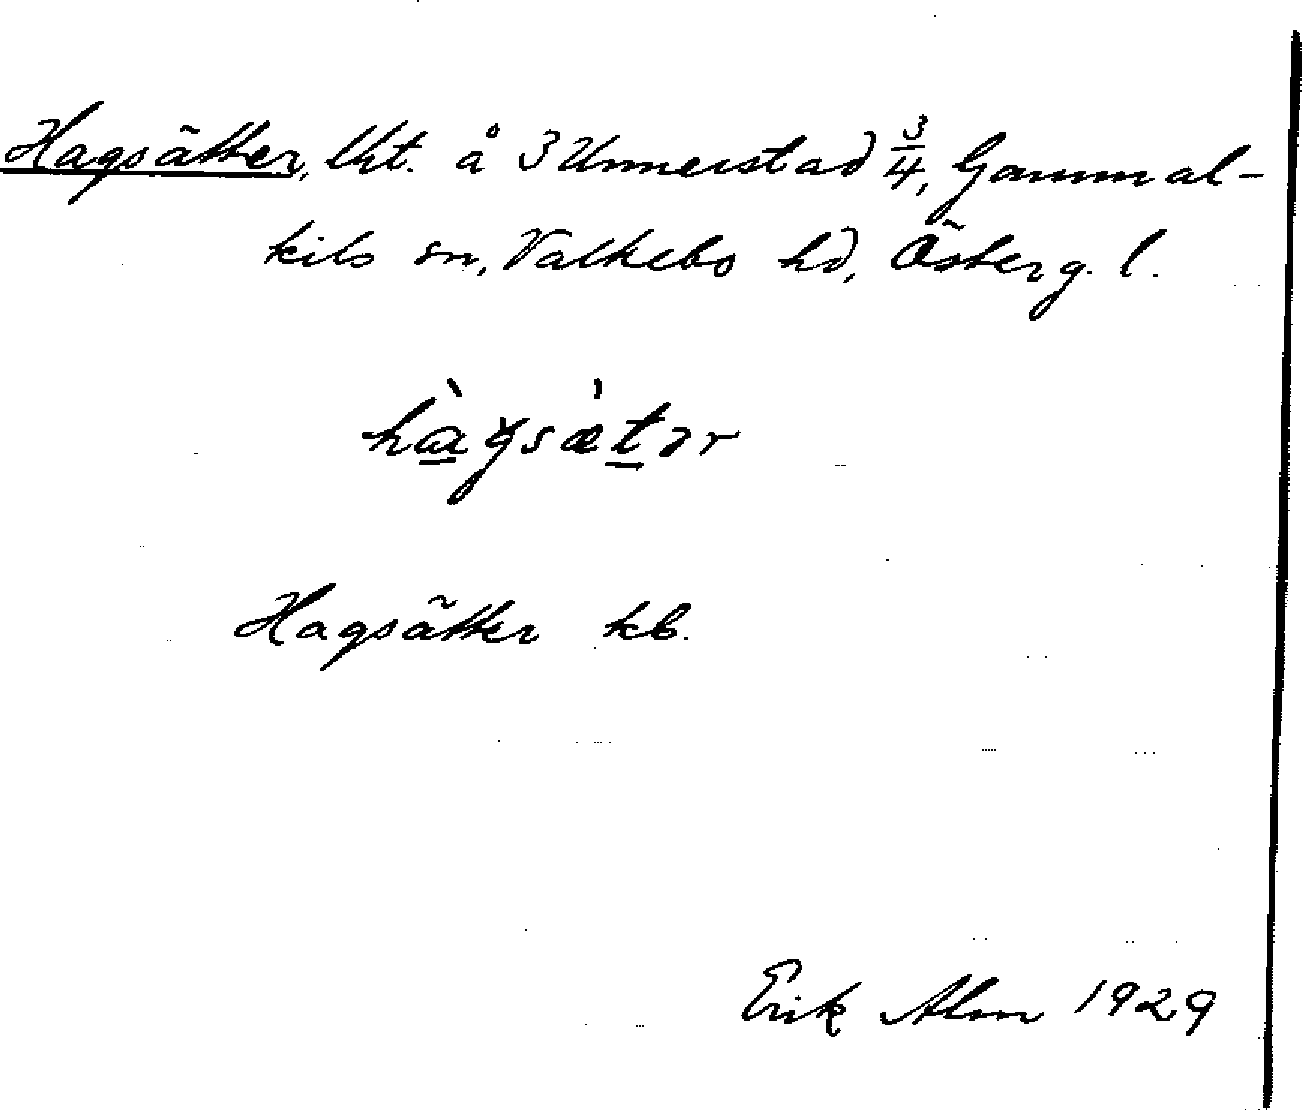 Hagsätter, lht. å 3 Unnerstad 3/4, Gammal-
kils sn, Valkebo hd, Österg. l.
hàgsæ̀tər
Hagsätter kb.
Erik Alm 1929